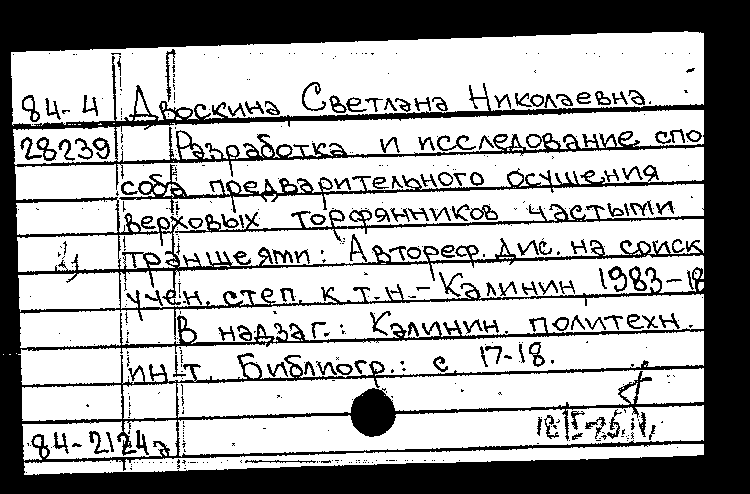 84-4 Двоскина, Светлана Николаевна.
28239 Разработка и исследование спо-
соба предварительного осушения
верховых торфянников частыми
траншеями: Автореф. дис. на соиск.
учен. степ. к.т.н. - Калинин, 1983 - 18
В надзаг.: Калинин. политехн.
ин-т. Библиогр.: с. 17-18.
84-2124а